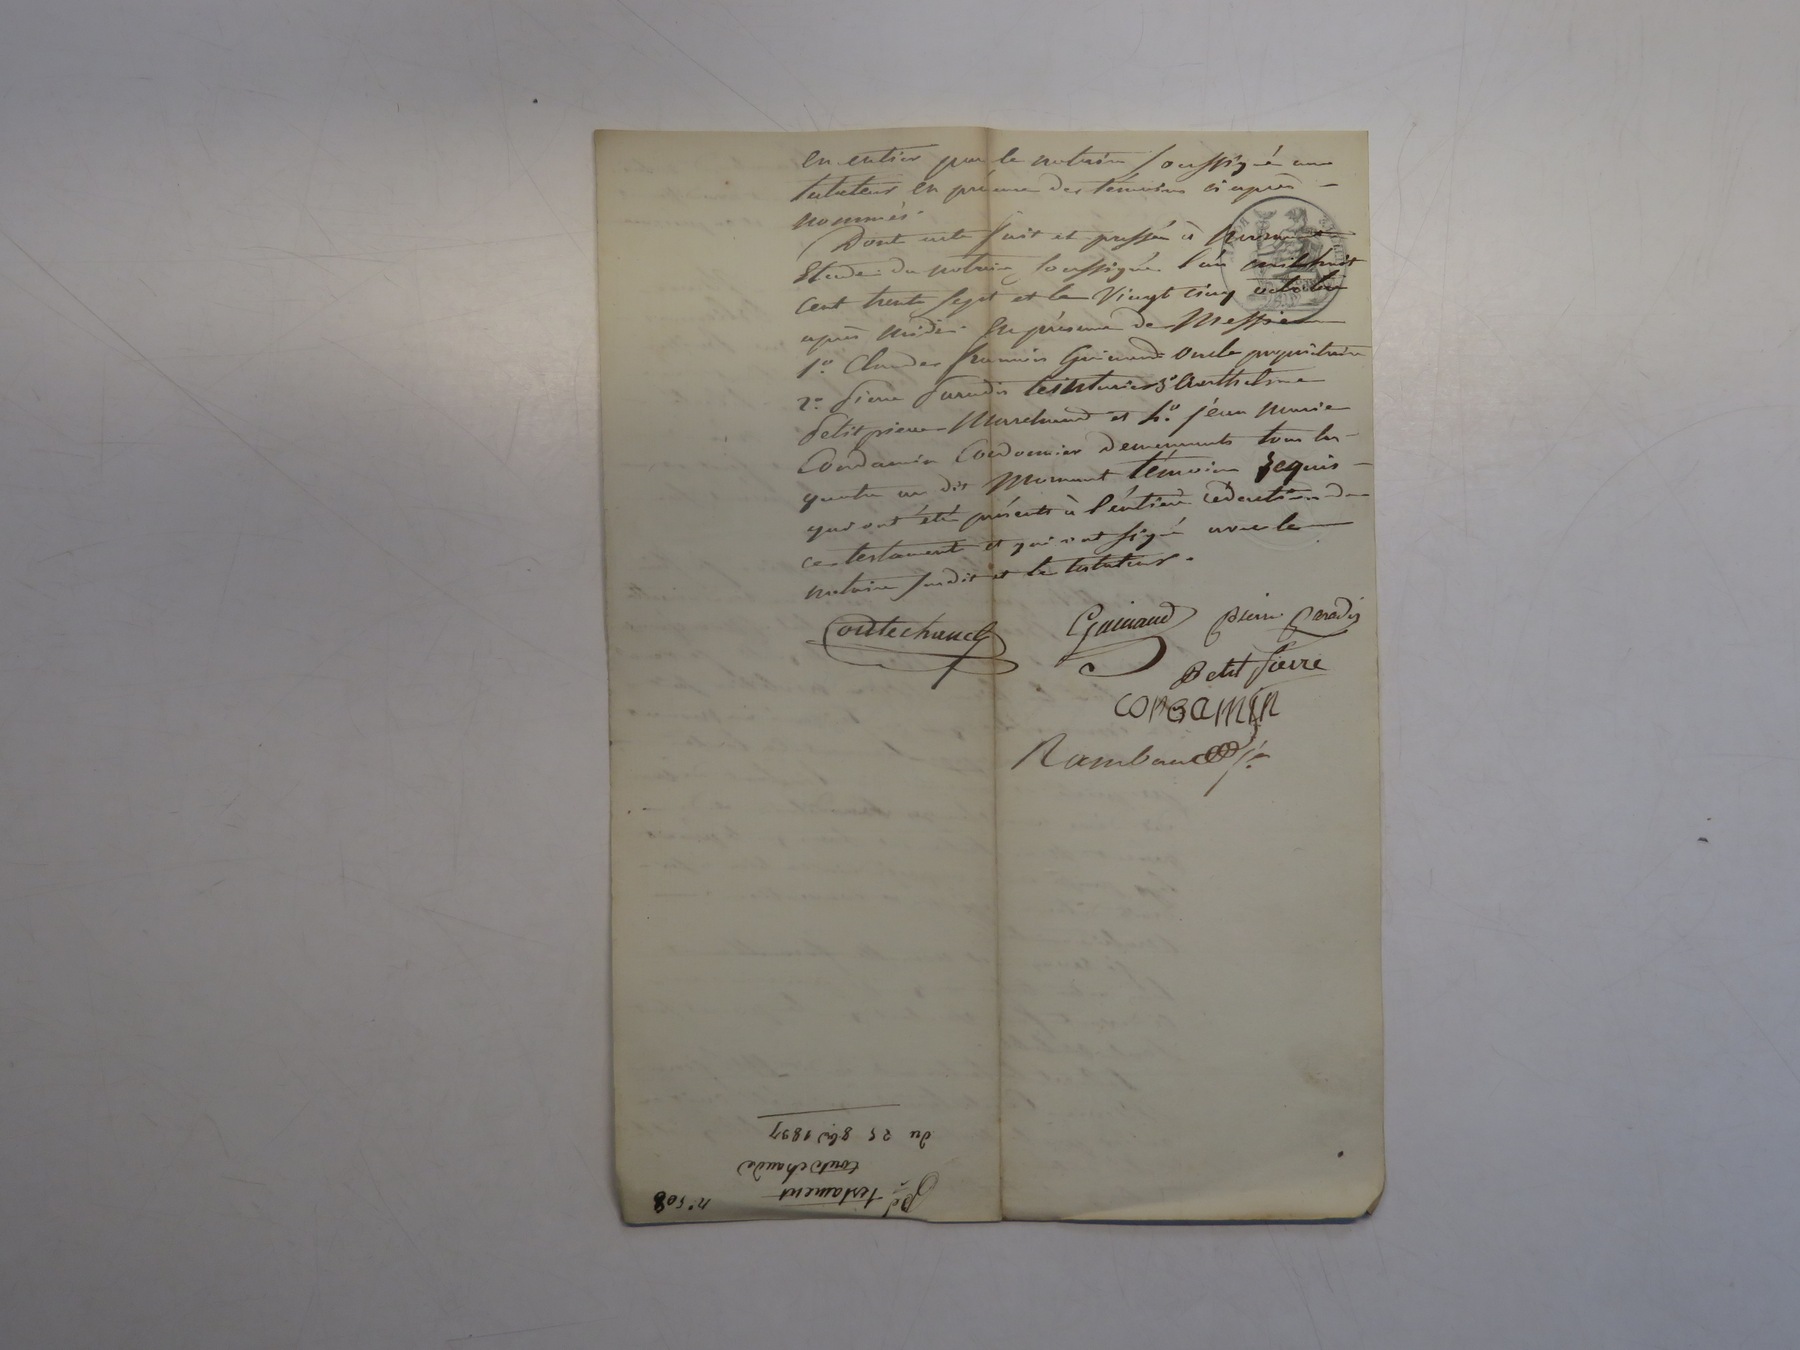 en entier par le notaire soussigné au
testateur en présence des témoins ci après
nommés.
Dont acte fait et passé à
Etude du notaire soussigné l'an mil huit
cent trente sept et le vingt cinq octobre
après midi. En présence de Messieurs
1º Claude françois Guinand oncle propriétaire
2º Pierre Paradis teinturier 3º Anthelme
Petitpierre Marchand et 4º jean Marie
Condamin Cordonnier demeurants tous les
quatre au dit Mornant témoins requis
qui ont été présents à l'entière rédaction de
ce testament et qui ont signé avec le
notaire susdit et le testateur.
Coutechaude
Guinand pierre Paradis
Petit Pierre
CONDAMIN
Rambaud
nº 508
testament
coutechaude
du 25 8bre 1837